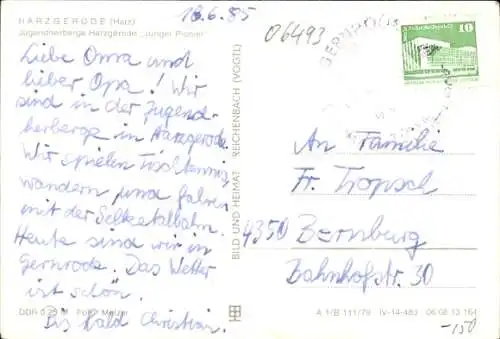 HARZGERODE (Harz)
Jugendherberge Harzgerode „Junger Pionier“
16.6.85
Liebe Oma und
lieber Opa! Wir
sind in der Jugend-
herberge in Harzgerode.
Wir spielen Tischtennis,
wandern und fahren
mit der Selketalbahn.
Heute sind wir in
Gernrode. Das Wetter
ist schön.
Bis bald Christian.
DDR 0,20 M Foto: Melzer
BILD UND HEIMAT REICHENBACH (VOGTL)
06493
10
An Familie
Fr. Tropsch
4350 Bernburg
Bahnhofstr. 30
A 1/B 111/79 IV-14-483 06 08 13 164
-150